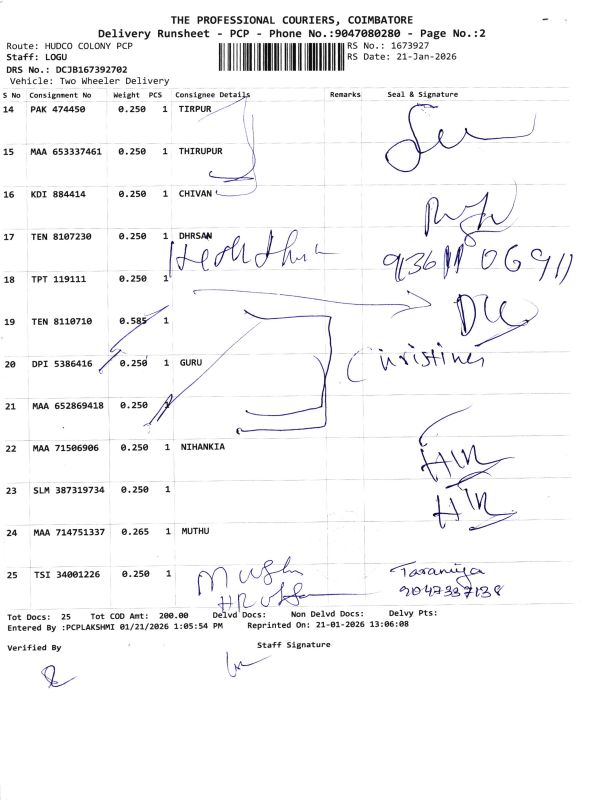 THE PROFESSIONAL COURIERS, COIMBATORE
Delivery Runsheet - PCP - Phone No.:9047080280 - Page No.:2
Route: HUDCO COLONY PCP
RS No.: 1673927
Staff: LOGU
RS Date: 21-Jan-2026
DRS No.: DCJB167392702
Vehicle: Two Wheeler Delivery
S No Consignment No Weight PCS Consignee Details Remarks Seal & Signature
14 PAK 474450 0.250 1 TIRPUR
15 MAA 653337461 0.250 1 THIRUPUR
16 KDI 884414 0.250 1 CHIVAN
17 TEN 8107230 0.250 1 DHRSAN
18 TPT 119111 0.250 1
19 TEN 8110710 0.585 1
20 DPI 5386416 0.250 1 GURU
Christines
21 MAA 652869418 0.250 1
22 MAA 71506906 0.250 1 NIHANKIA
23 SLM 387319734 0.250 1
24 MAA 714751337 0.265 1 MUTHU
25 TSI 34001226 0.250 1
9047337138
Tot Docs: 25 Tot COD Amt: 200.00 Delvd Docs: Non Delvd Docs: Delvy Pts:
Entered By :PCPLAKSHMI 01/21/2026 1:05:54 PM Reprinted On: 21-01-2026 13:06:08
Verified By
Staff Signature